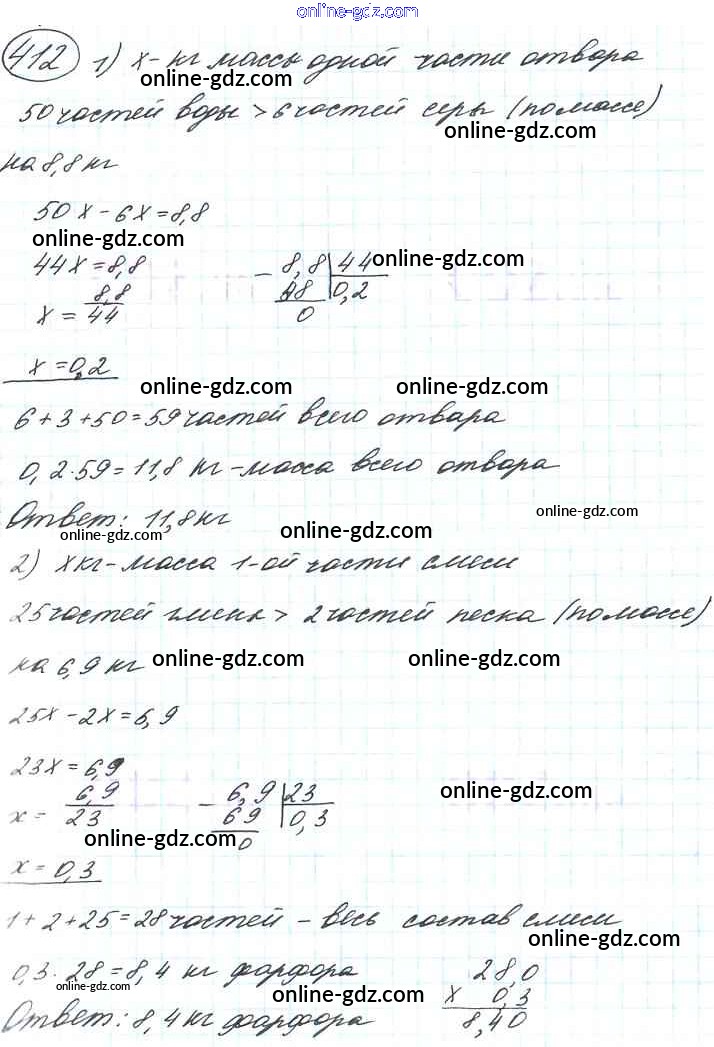 online-gdz.com
412 1) x - кг масса одной части отвара
online-gdz.com
50 частей воды > 6 частей серы (по массе)
online-gdz.com
на 8,8 кг
50x - 6x = 8,8
online-gdz.com
44x = 8,8
- 8,8 | 44
online-gdz.com
x = 8,8/44
88 | 0,2
0
x = 0,2
online-gdz.com online-gdz.com
6 + 3 + 50 = 59 частей всего отвара
0,2 · 59 = 11,8 кг - масса всего отвара
online-gdz.com
Ответ: 11,8 кг
online-gdz.com online-gdz.com
2) x кг - масса 1-ой части смеси
25 частей глины > 2 частей песка (по массе)
на 6,9 кг
online-gdz.com online-gdz.com
25x - 2x = 6,9
23x = 6,9
online-gdz.com
x = 6,9/23
- 6,9 | 23
69 | 0,3
0
online-gdz.com
x = 0,3
1 + 2 + 25 = 28 частей - весь состав смеси
online-gdz.com
0,3 · 28 = 8,4 кг фарфора
28,0
x 0,3
8,40
online-gdz.com online-gdz.com
Ответ: 8,4 кг фарфора